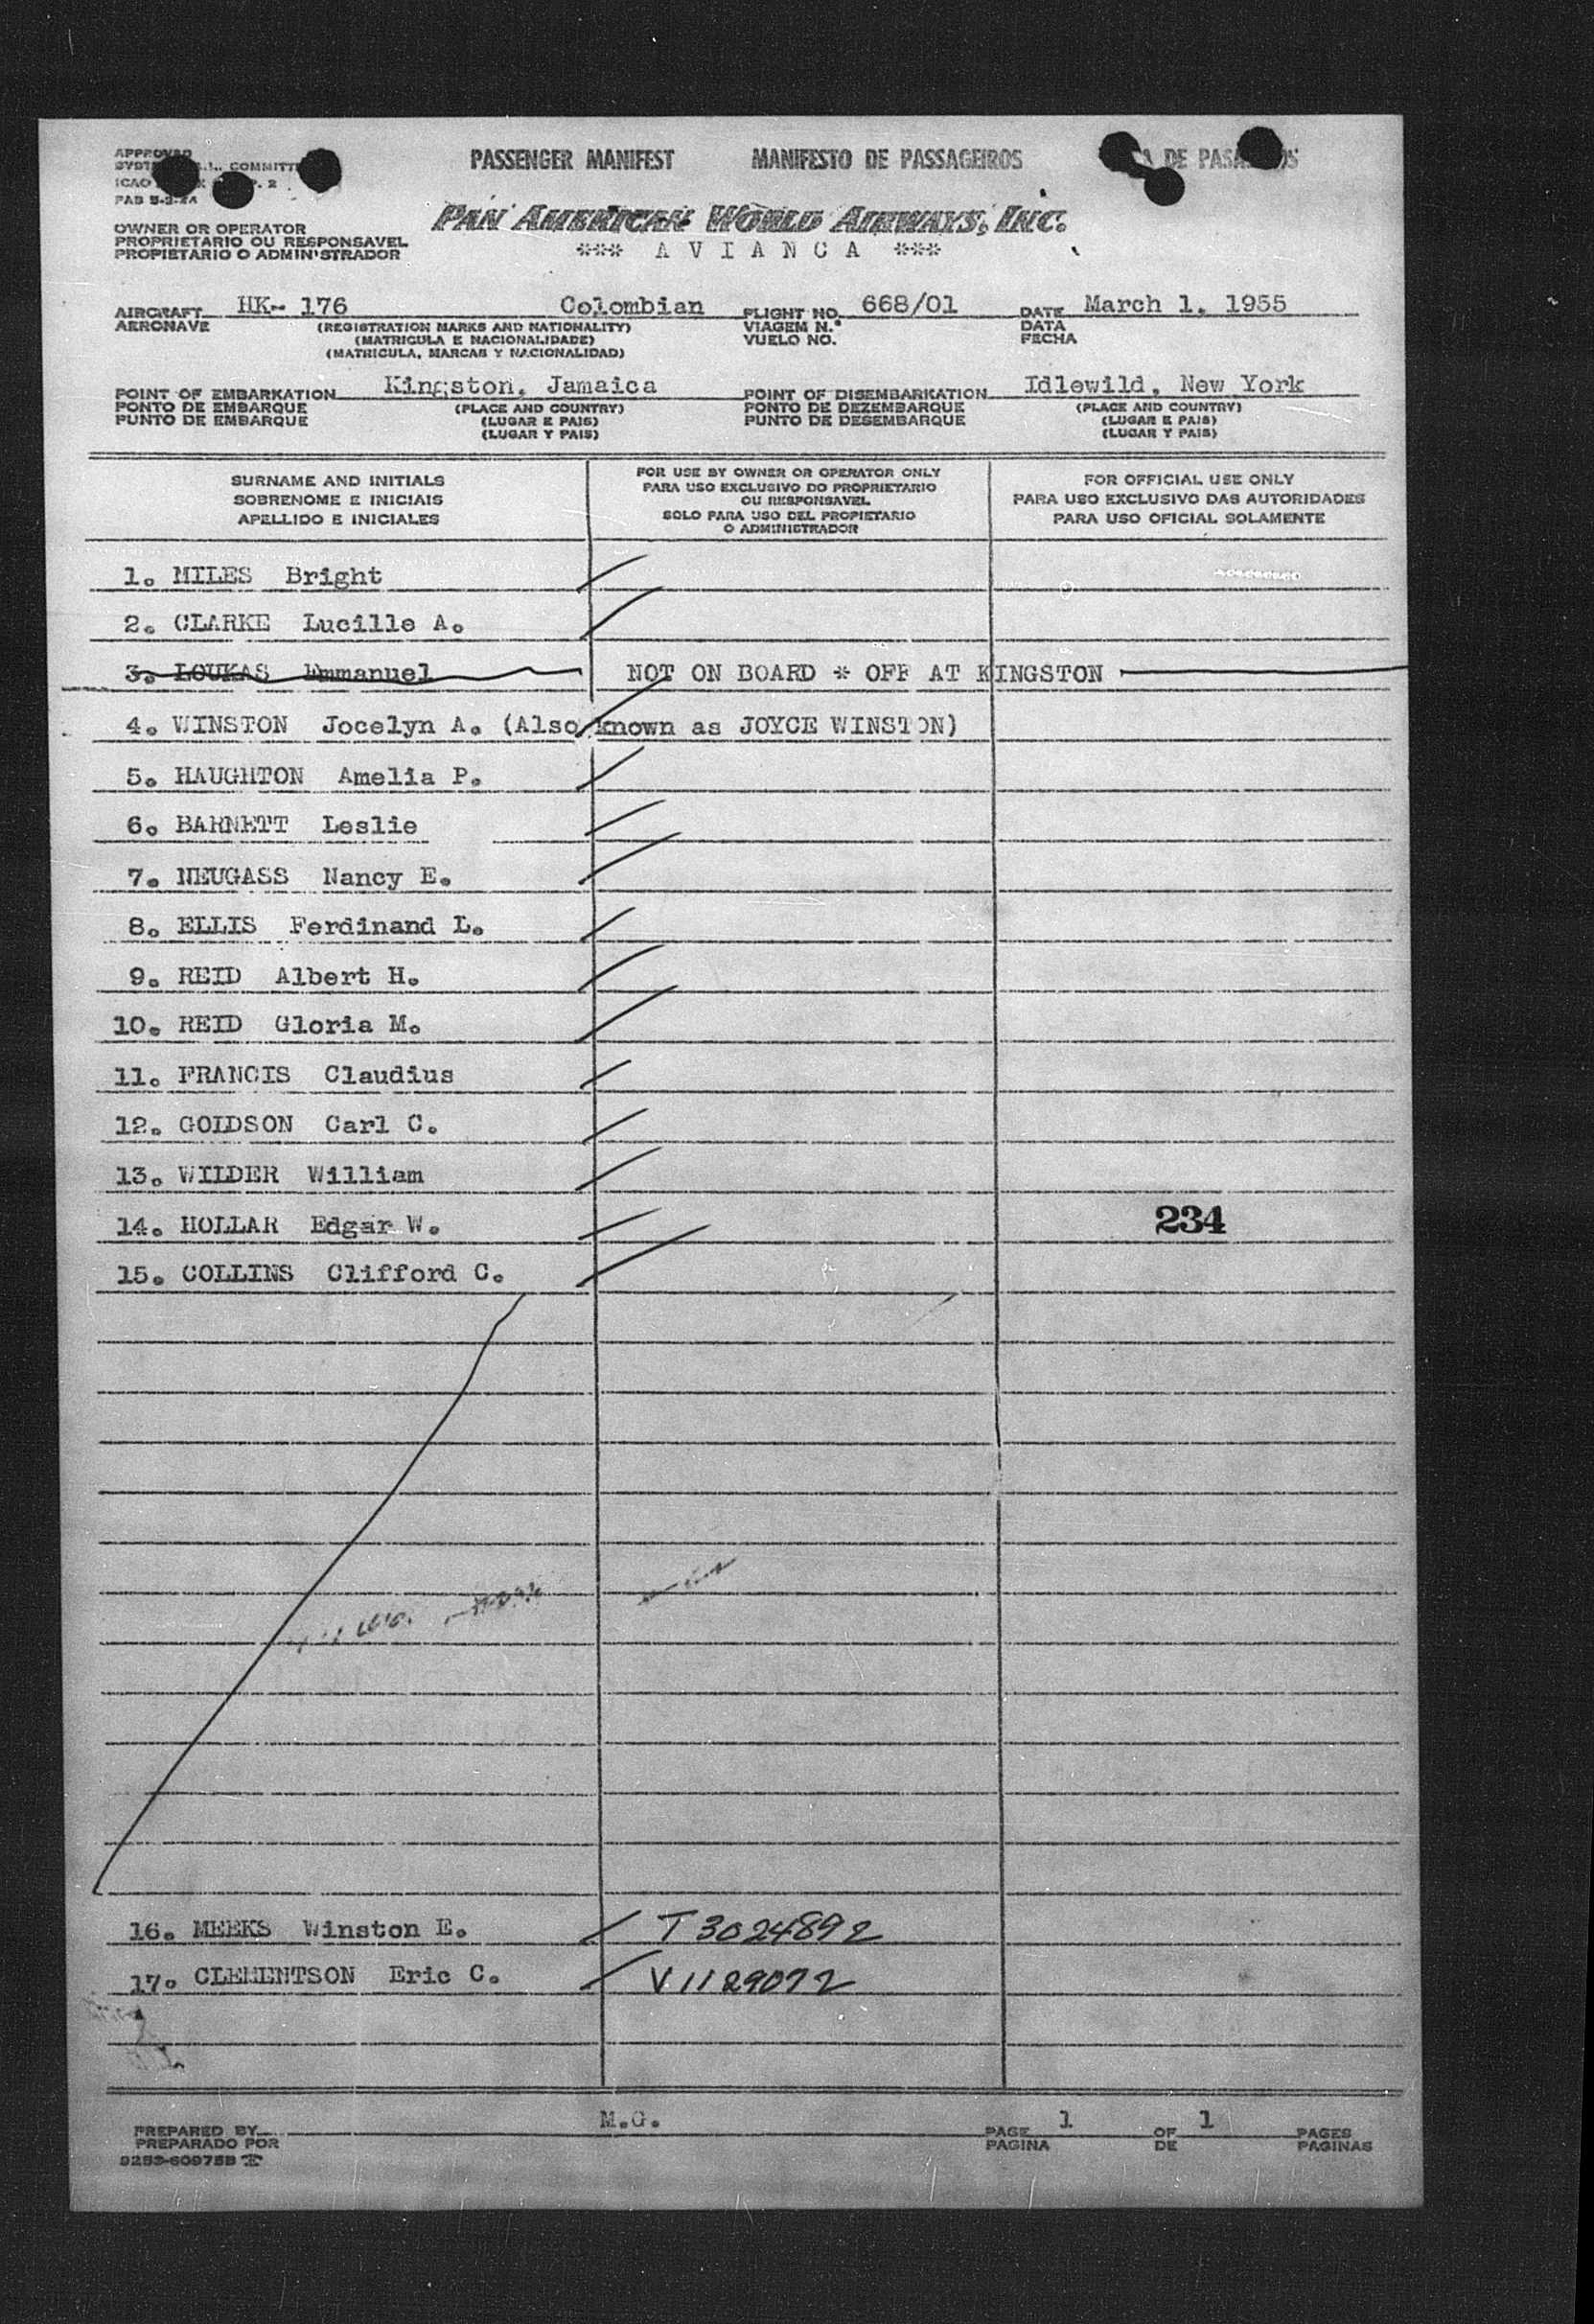 APPROVED
COMMITT
ICAO P. 2
PASSENGER MANIFEST MANIFESTO DE PASSAGEIROS DE PASA OS
PAN AMERICAN WORLD AIRWAYS, INC.
*** A V I A N C A ***
OWNER OR OPERATOR
PROPRIETARIO OU RESPONSAVEL
PROPIETARIO O ADMINISTRADOR
AIRCRAFT HK- 176 Colombian FLIGHT NO. 668/01 DATE March 1, 1955
AERONAVE (REGISTRATION MARKS AND NATIONALITY) VIAGEM N.º DATA
(MATRICULA E NACIONALIDADE) VUELO NO. FECHA
(MATRICULA, MARCAS Y NACIONALIDAD)
POINT OF EMBARKATION Kingston, Jamaica POINT OF DISEMBARKATION Idlewild, New York
PONTO DE EMBARQUE (PLACE AND COUNTRY) PONTO DE DEZEMBARQUE (PLACE AND COUNTRY)
PUNTO DE EMBARQUE (LUGAR E PAIS) PUNTO DE DESEMBARQUE (LUGAR E PAIS)
(LUGAR Y PAIS) (LUGAR Y PAIS)
SURNAME AND INITIALS
SOBRENOME E INICIAIS
APELLIDO E INICIALES
FOR USE BY OWNER OR OPERATOR ONLY
PARA USO EXCLUSIVO DO PROPRIETARIO
OU RESPONSAVEL
SOLO PARA USO DEL PROPIETARIO
O ADMINISTRADOR
FOR OFFICIAL USE ONLY
PARA USO EXCLUSIVO DAS AUTORIDADES
PARA USO OFICIAL SOLAMENTE
1. MILES Bright
2. CLARKE Lucille A.
3. LOUKAS Emmanuel NOT ON BOARD * OFF AT KINGSTON
4. WINSTON Jocelyn A. (Also known as JOYCE WINSTON)
5. HAUGHTON Amelia P.
6. BARNETT Leslie
7. NEUGASS Nancy E.
8. ELLIS Ferdinand L.
9. REID Albert H.
10. REID Gloria M.
11. FRANCIS Claudius
12. GOIDSON Carl C.
13. WILDER William
14. HOLLAR Edgar W. 234
15. COLLINS Clifford C.
16. MEEKS Winston E. T 3024892
17. CLEMENTSON Eric C. V 1129072
PREPARED BY M.G. PAGE 1 OF 1 PAGES
PREPARADO POR PAGINA DE PAGINAS
9253-60975B